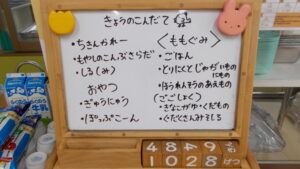 きょうのこんだて
・ちきんかれー
・もやしのこんぶさらだ
・しる(み)
おやつ
・ぎゅうにゅう
・ぽっぷこーん
<ももぐみ>
・ごはん
・とりにくとじゃがいもの
にもの
・ほうれんそうのあえもの
(ごごしょく)
・きなこがゆ・くだもの
・ぐだくさんみそしる
4 8 4 9
1 0 2 8 げつ